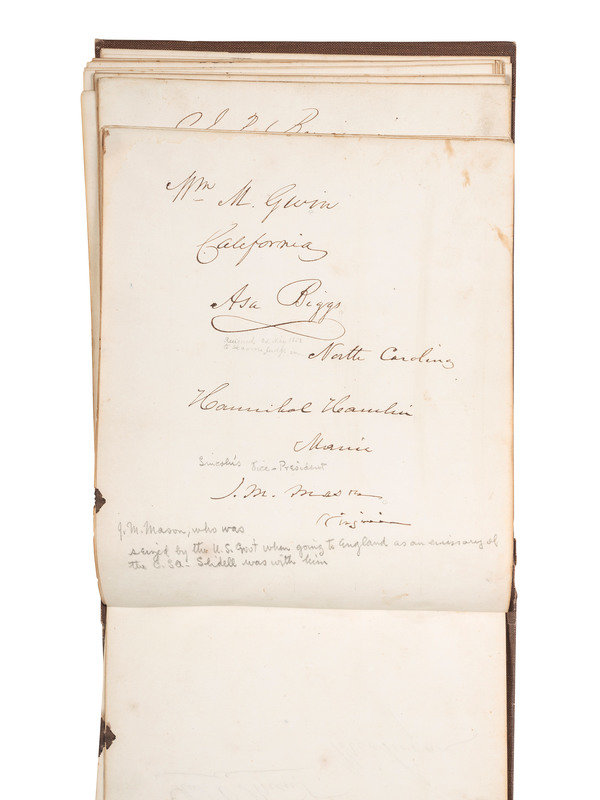 Wm M. Gwin
California
Asa Biggs
to become judge in
North Carolina
Hannibal Hamlin
Maine
Lincoln's Vice-President
J. M. Mason
Virginia
J. M. Mason, who was
seized by the U.S. Govt when going to England as an emissary of
the C.S.A. Slidell was with him